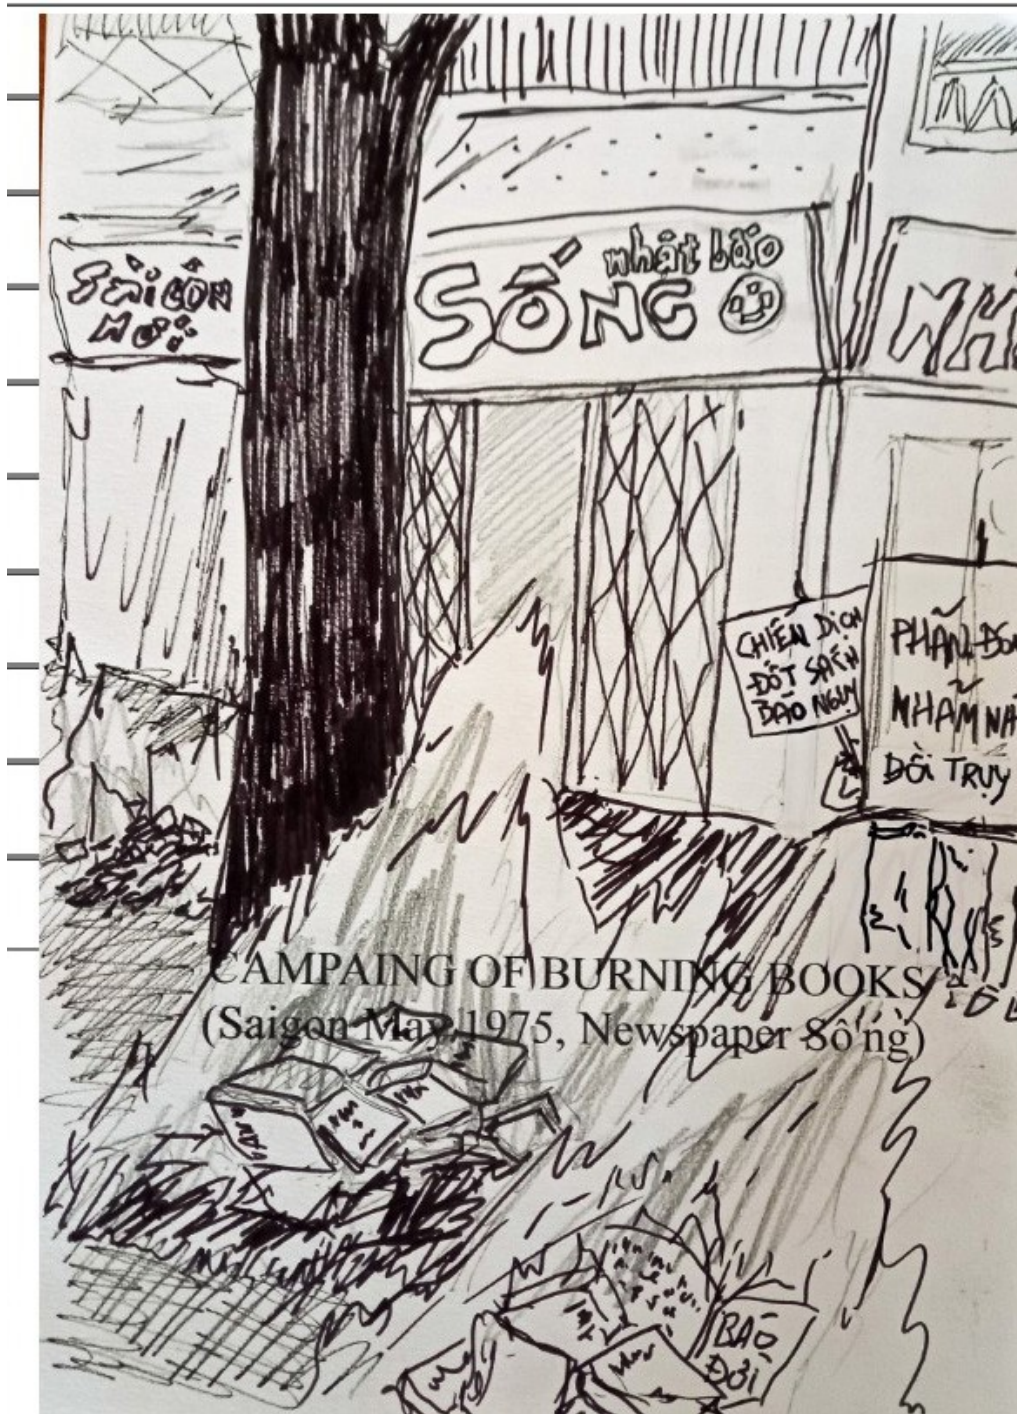 SÀI GÒN
MỚI
nhật báo
SỐNG
NH
CHIẾN DỊCH
ĐỐT SÁCH
BÁO NGUỴ
PHẢN ĐỘ
NHẢM NH
ĐỒI TRỤY
CAMPAING OF BURNING BOOKS
(Saigon May 1975, Newspaper Số'ng)
BÁO
ĐỜI